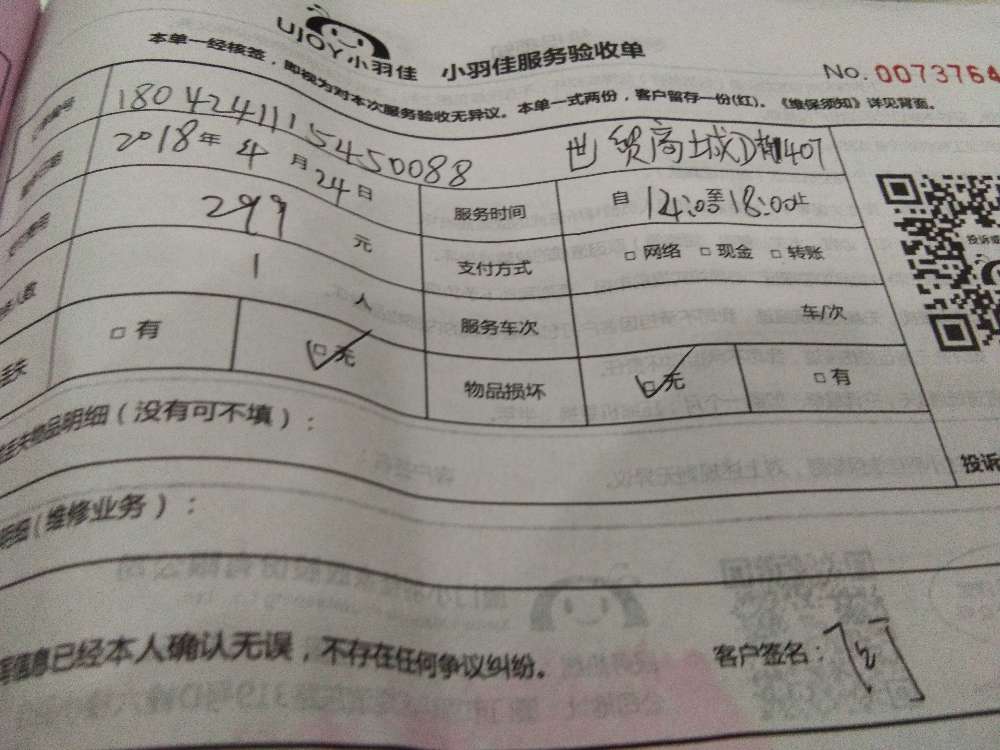 UJOY小羽佳 小羽佳服务验收单
No. 0073764
本单一经核签，即视为对本次服务验收无异议。本单一式两份，客户留存一份(红)。《维保须知》详见背面。
180424111545 0088 世贸商城D栋1407
2018年4月24日 服务时间 自14:00至18:00止
299元 支付方式 □网络 □现金 □转账
1人 服务车次 车/次
□有 □无 物品损坏 □无 □有
物品明细（没有可不填）：
明细(维修业务）：
投诉
信息已经本人确认无误，不存在任何争议纠纷。 客户签名：